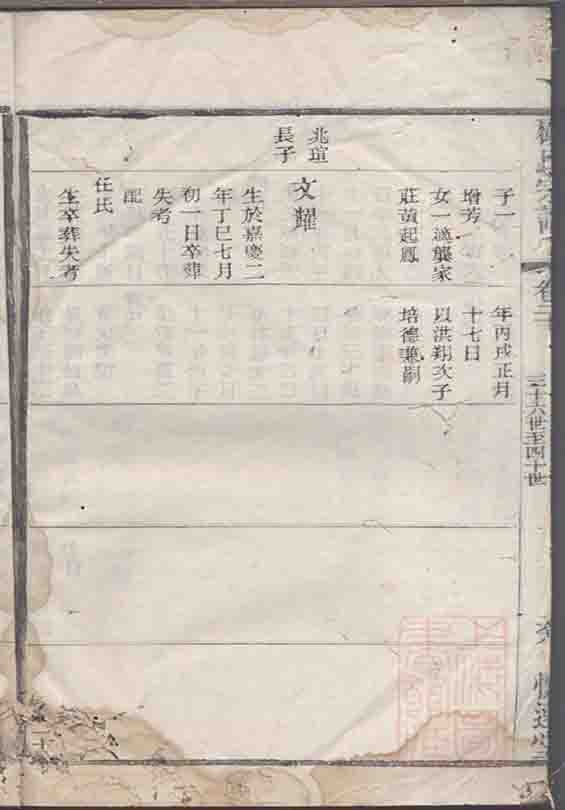 子一
增芳
女一適龔家
莊黃起鳳
年丙戌正月
十七日
以洪翔次子
培德兼嗣
兆瑄
長子
文耀
生於嘉慶二
年丁巳七月
初一日卒葬
失考
配
任氏
生卒葬失考
卷三
三十六世至四十世